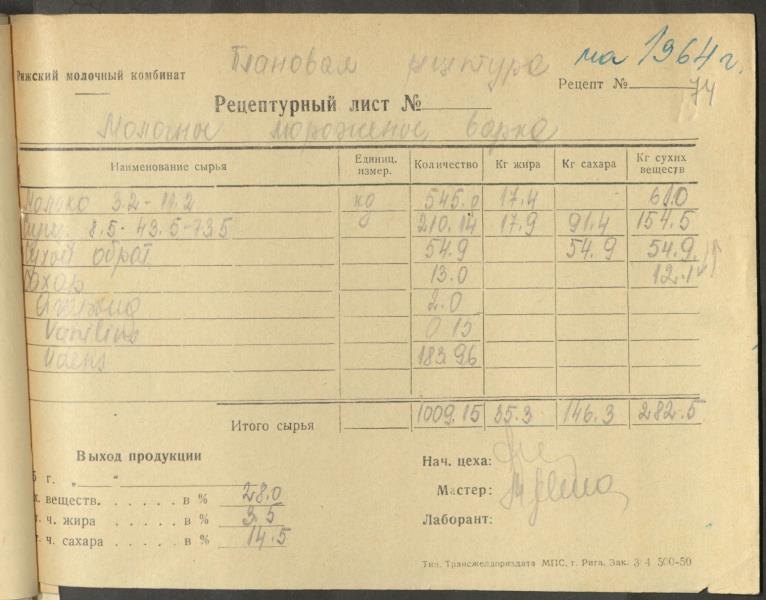 Плановая рецептура на 1964 г.
Рижский молочный комбинат
Рецепт № 74
Рецептурный лист №
Молочное мороженое варка
Наименование сырья Единиц. измер. Количество Кг жира Кг сахара Кг сухих веществ
Молоко 3.2 - 11.2 кg 545.0 17.4 61.0
8.5 - 43.5 - 73.5 210.14 17.9 91.4 154.5
Сухой обрат 54.9 54.9 54.9
Сахар 13.0 12.1
2.0
Vanilīns 0.15
Ūdens 183.96
Итого сырья 1009.15 35.3 146.3 282.5
Выход продукции
г. „ “
веществ. . . . . . в % 28.0
ч. жира . . . . . в % 3.5
ч. сахара . . . . . в % 14.5
Нач. цеха:
Мастер:
Лаборант:
Тип. Трансжелдориздата МПС, г. Рига. Зак. 3 4 500-50